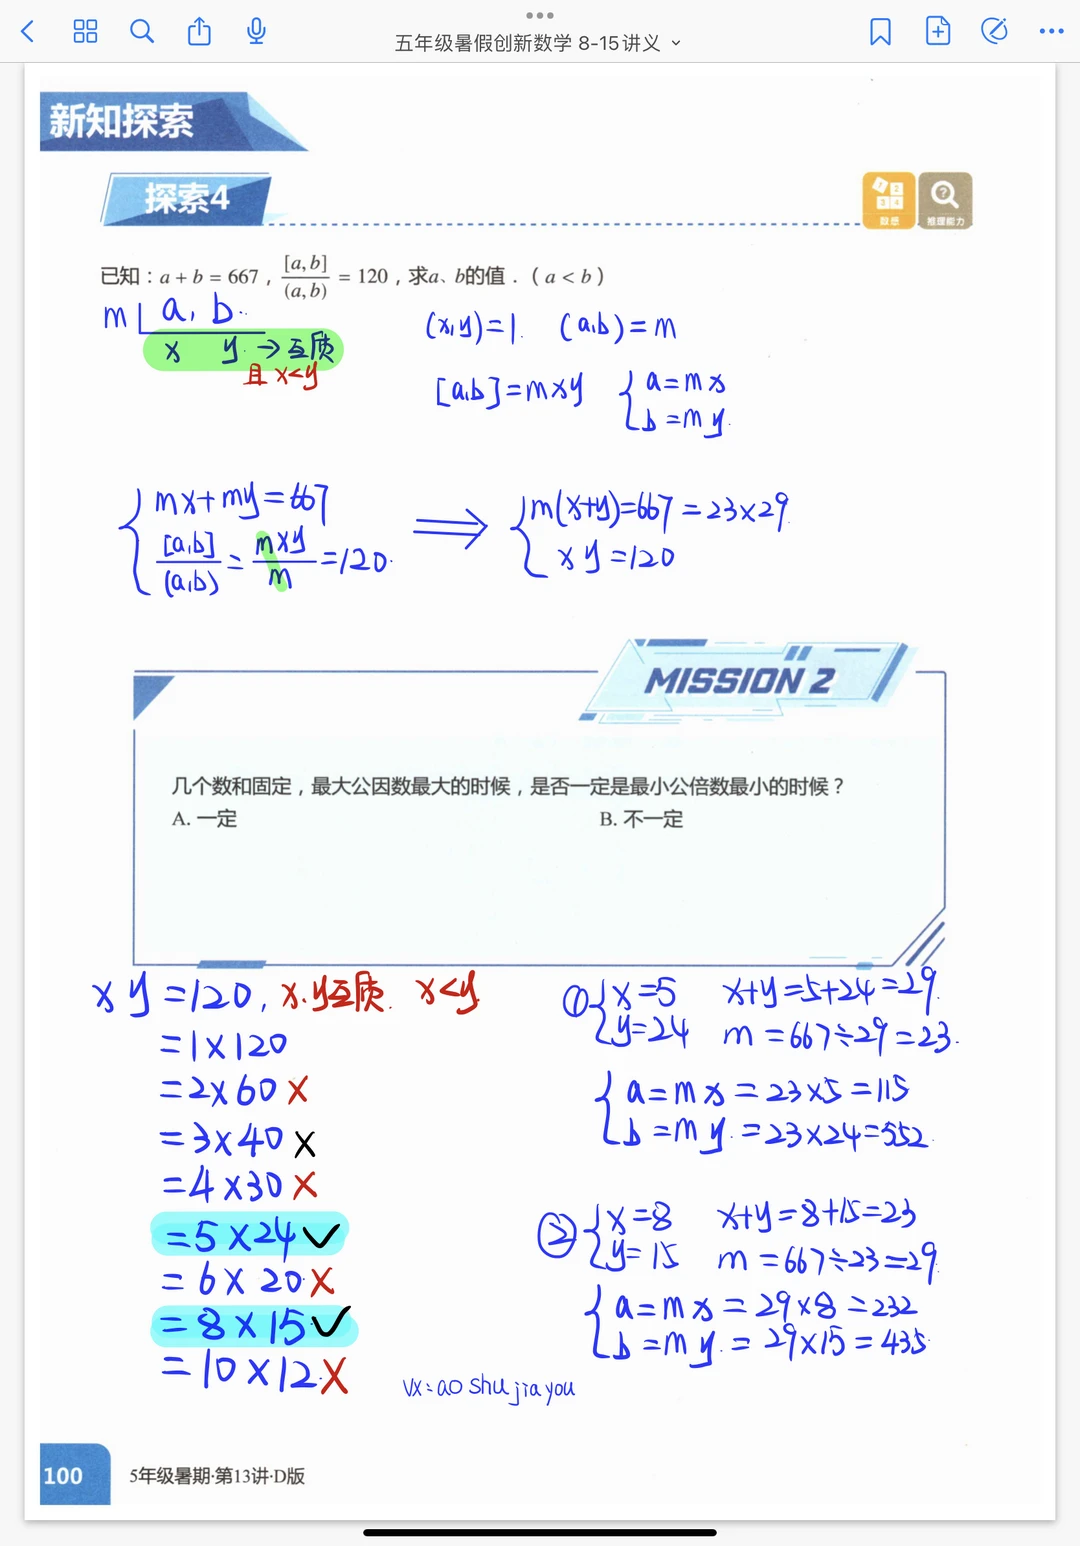 五年级暑假创新数学 8-15讲义
新知探索
探索4
数感
推理能力
已知：a + b = 667，[a, b]/(a, b) = 120，求a、b的值．（a < b）
m a, b
x y → 互质
且 x<y
(x,y)=1. (a,b)=m
[a,b]=mxy { a=mx
b=my.
{ mx+my=667
[a,b]/(a,b) = mxy/m =120.
⇒ { m(x+y)=667=23×29.
xy=120
MISSION 2
几个数和固定，最大公因数最大的时候，是否一定是最小公倍数最小的时候？
A. 一定 B. 不一定
xy=120, x.y互质. x<y.
=1×120
=2×60 ×
=3×40 ×
=4×30 ×
=5×24 ✓
=6×20 ×
=8×15 ✓
=10×12 ×
① { x=5 x+y=5+24=29.
y=24 m=667÷29=23.
{ a=mx=23×5=115
b=my.=23×24=552.
② { x=8 x+y=8+15=23
y=15 m=667÷23=29.
{ a=mx=29×8=232
b=my.=29×15=435.
vx:aoshujiayou
100 5年级暑期·第13讲·D版